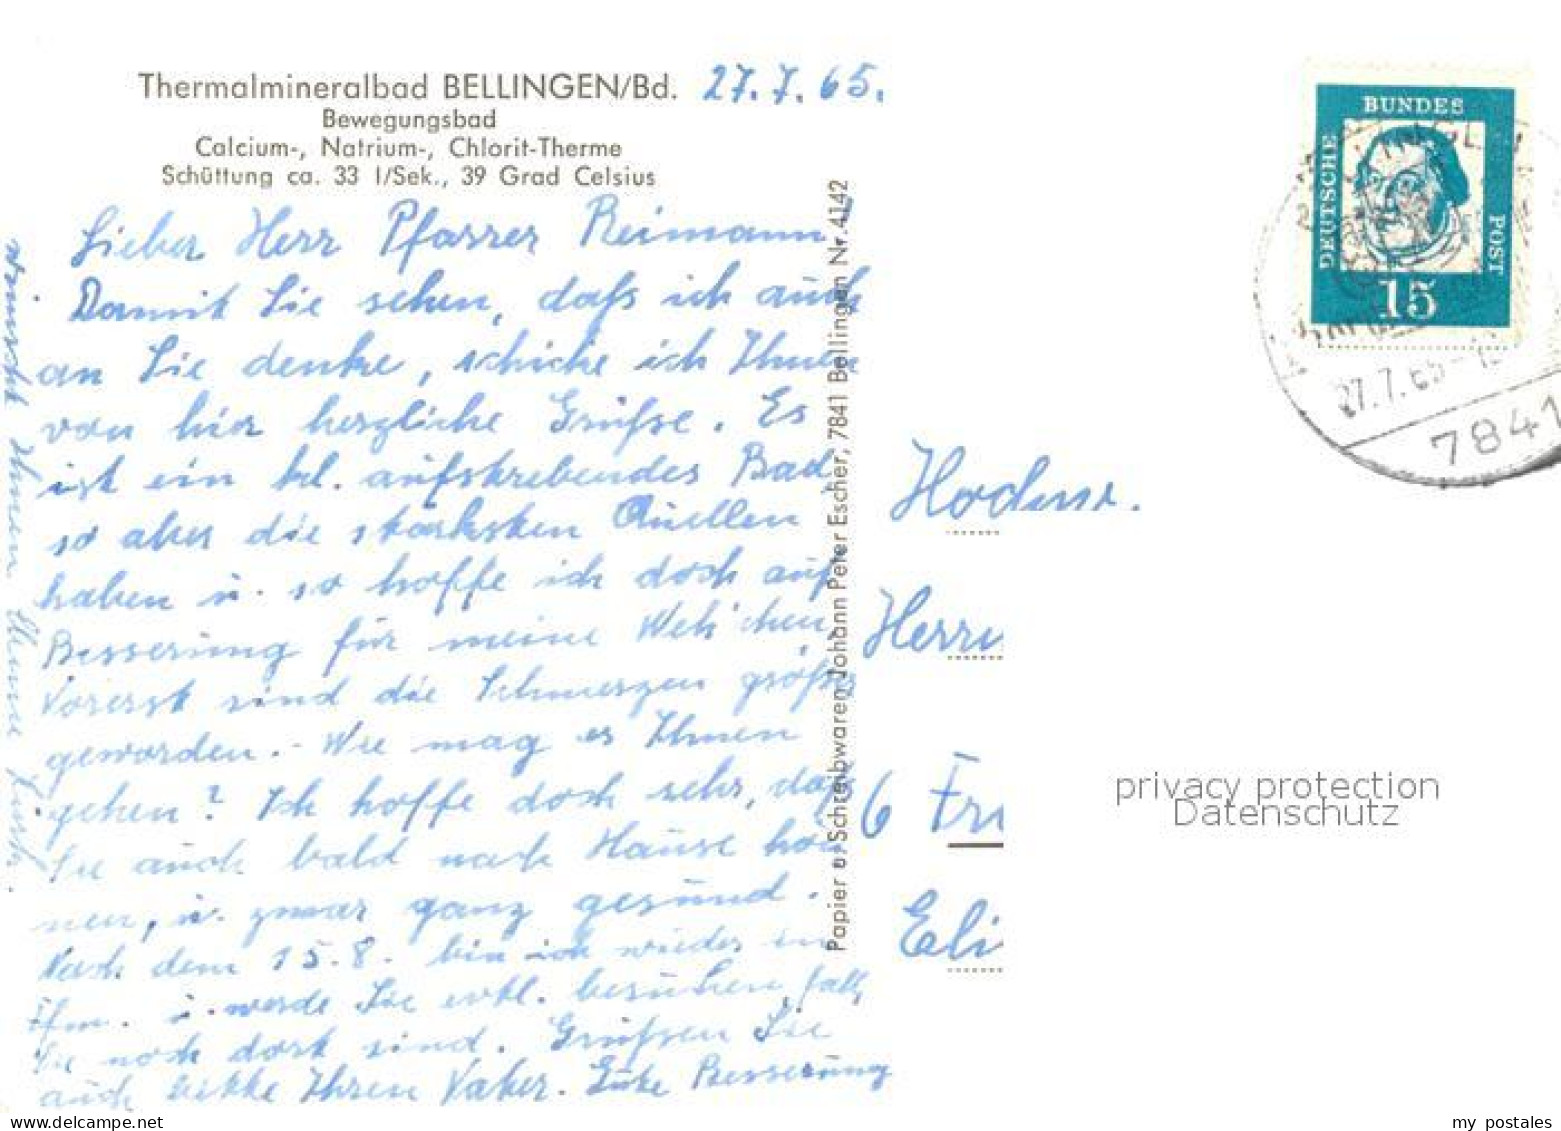 Thermalmineralbad BELLINGEN/Bd. 27.7.65.
Bewegungsbad
Calcium-, Natrium-, Chlorit-Therme
Schüttung ca. 33 l/Sek., 39 Grad Celsius
Lieber Herr Pfarrer Reimann!
Damit Sie sehen, daß ich auch
an Sie denke, schicke ich Ihnen
von hier herzliche Grüße. Es
ist ein kl. aufstrebendes Bad,
so aber die stärksten Quellen
haben u. so hoffe ich doch auf
Besserung für meine Weh'chen.
Vorerst sind die Schmerzen größer
geworden. - Wie mag es Ihnen
gehen? Ich hoffe doch sehr, daß
Sie auch bald nach Hause kön
nen, u. zwar ganz gesund.
Nach dem 15.8. bin ich wieder in
Ffm. u. werde Sie evtl. besuchen, falls
Sie noch dort sind. Grüßen Sie
auch bitte Ihren Vater. Gute Besserung
wünscht Ihnen Ihre
Papier u. Schreibwaren Johann Peter Escher, 7841 Bellingen Nr. 4142
DEUTSCHE
BUNDES
POST
15
27.7.65
7841
Herrn
6 Fr
Eli
privacy protection
Datenschutz
delcampe.net
my_postales